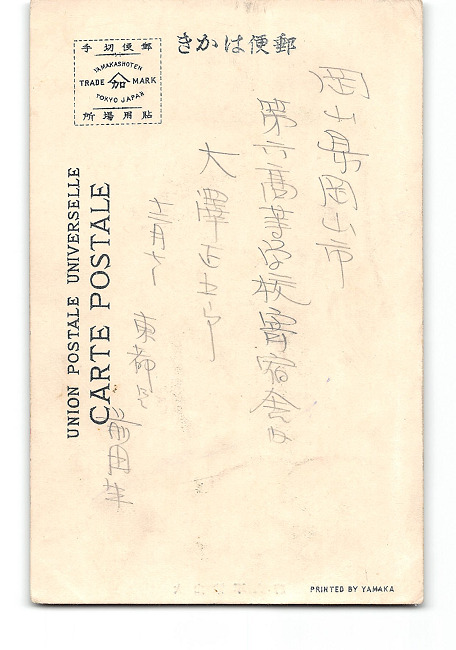 きかは便郵
手切便郵
YAMAKASHOTEN
TRADE 加 MARK
TOKYO JAPAN
所場用貼
UNION POSTALE UNIVERSELLE
CARTE POSTALE
岡山県岡山市
第六高等学校寄宿舎内
大澤正
東都ニテ
前田生
PRINTED BY YAMAKA